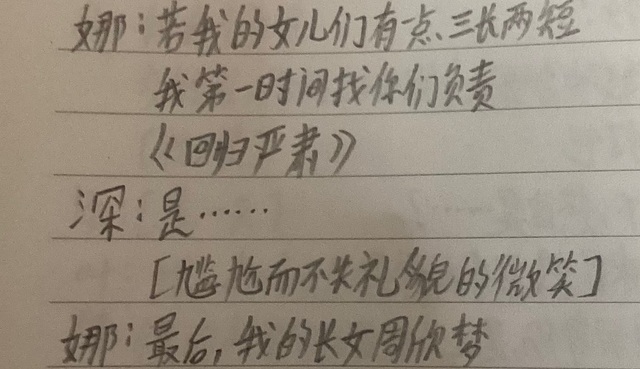 娜：若我的女儿们有一点三长两短
我第一时间找你们负责
《回归严肃》
深：是……
[尴尬而不失礼貌的微笑]
娜：最后，我的长女周欣梦